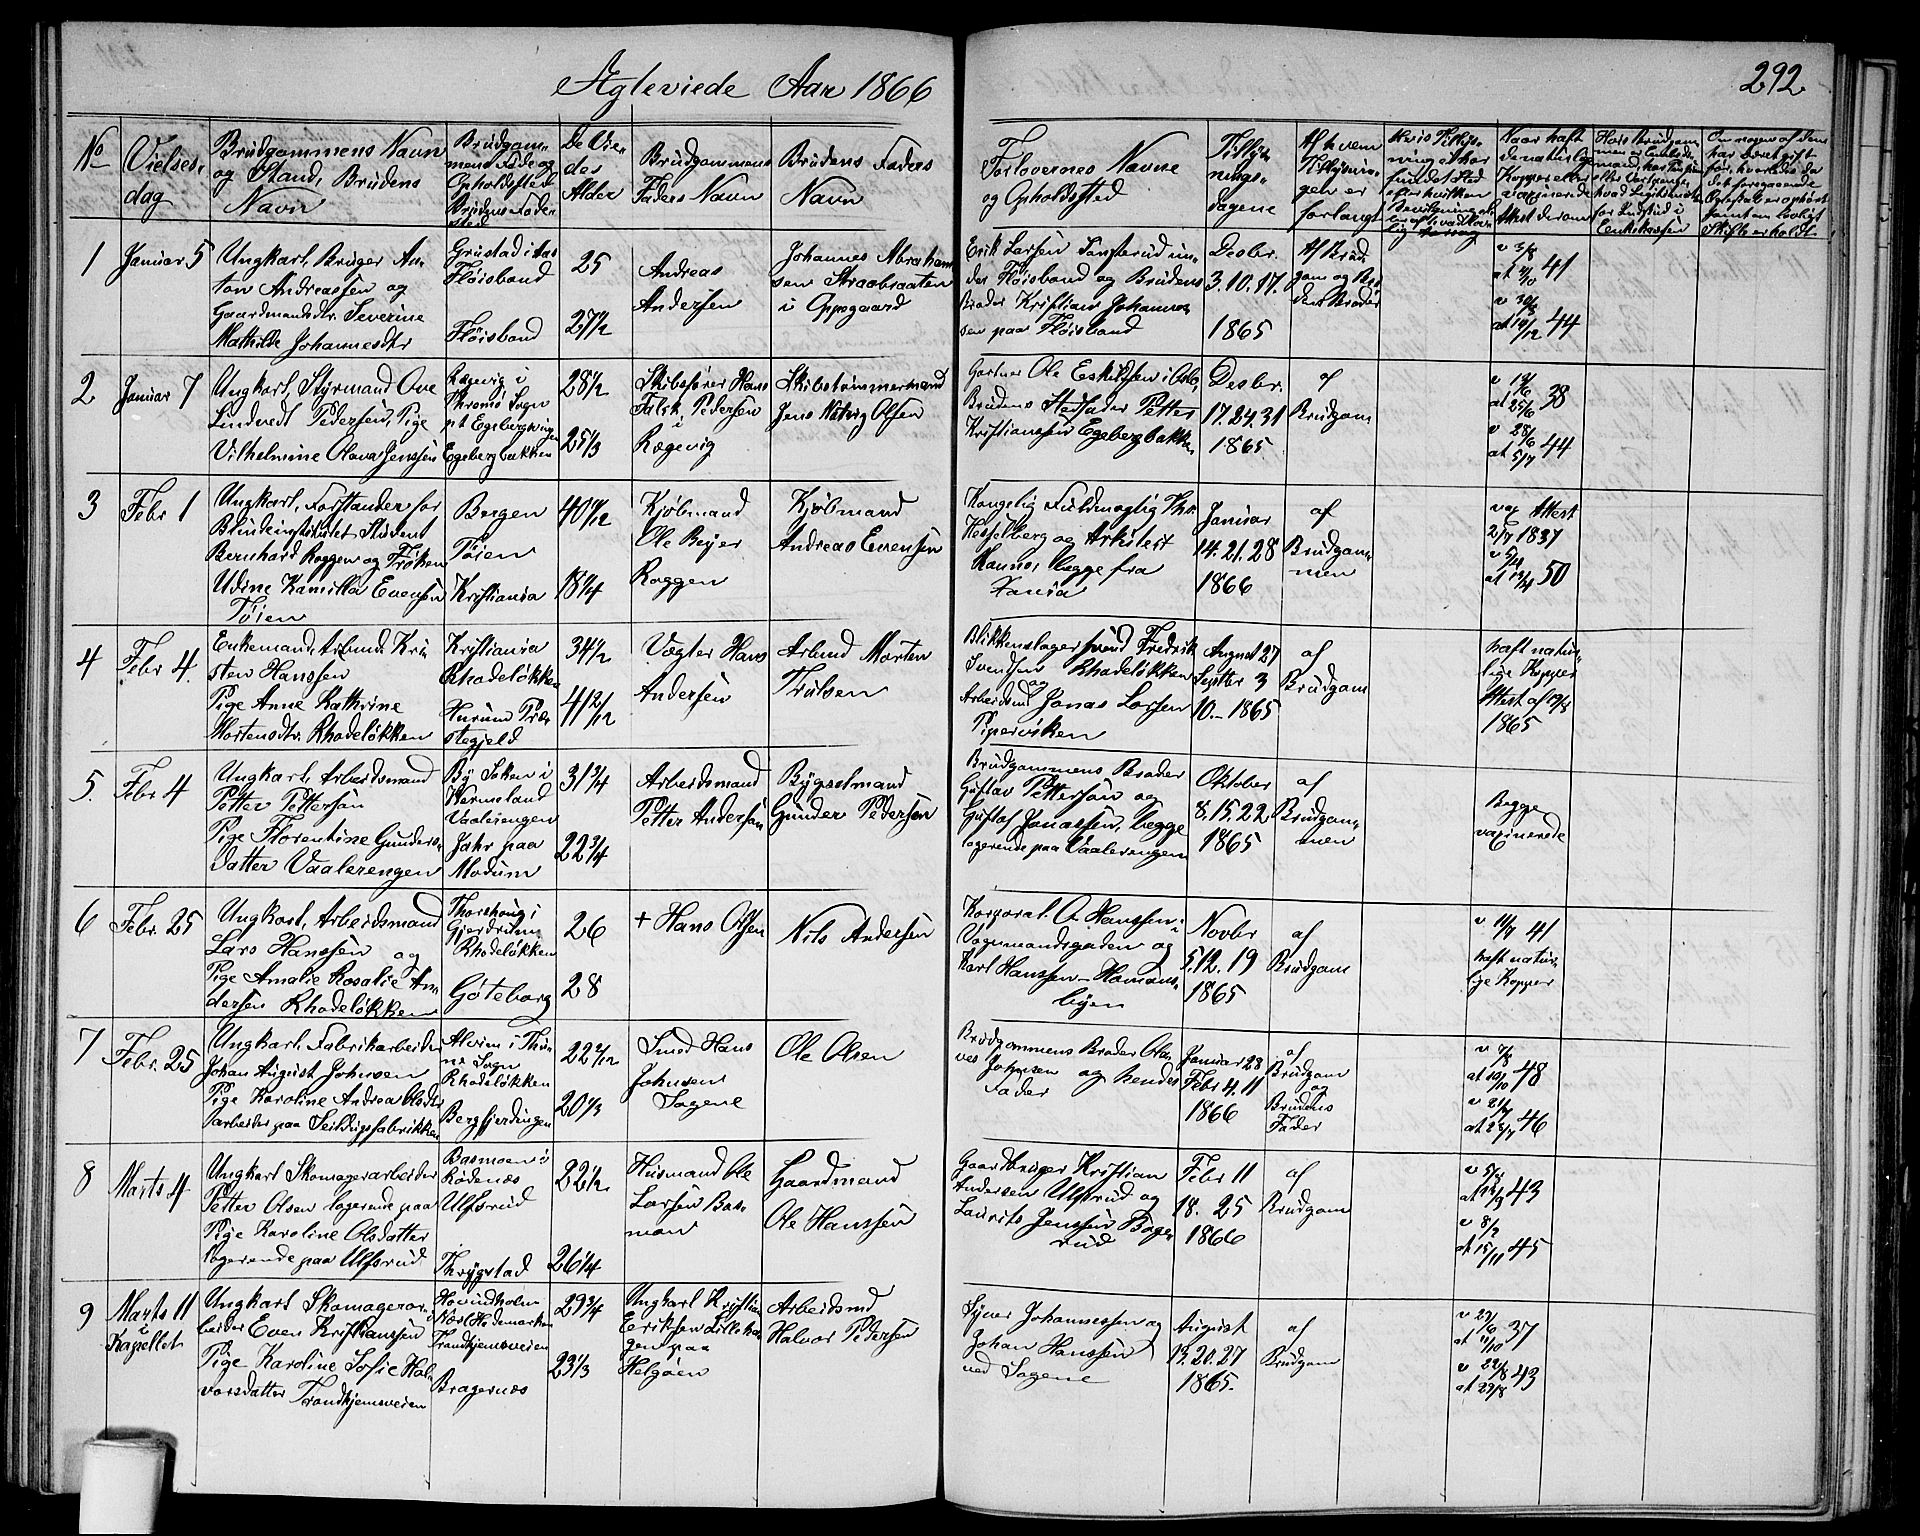 Ægteviede Aar 1866
292
No
Vielses-
dag
Brudgommens Navn
og Stand, Brudens
Navn
Brudgom-
mens Føde og
Opholdssted
Brudens Føde-
sted
De Vie-
des
Alder
Brudgommens
Faders Navn
Brudens Faders
Navn
Forlovernes Navne
og Opholdssted
Tillys-
nings-
dagene
Af hvem
Tillysnin-
gen er
forlangt
1
Januar 5
Ungkarl, Bruger An-
ton Andreassen og
Gaardmandsdtr. Severine
Mathilde Johannesdtr
Grustad i Aas
Fløisbond
Fløisbond
25
27 1/2
Andreas
Andersen
Johannes Abraham-
sen Straabraaten
i Oppegaard
Erik Larsen Tangterud un-
der Fløisbond og Brudens
Broder Kristian Johannes-
sen paa Fløisbond
Desbr.
3.10.17.
1865
Af Brud
gom og Bru
dens Broder
v 3/8
at 41
v 30/8
at 44
2
Januar 7
Ungkarl, Styrmand Ove
Lundvedt Pedersen, Pige
Vilhelmine Olava Jenssen
Rægevig i
Thromø Sogn
pt Egebergveigen
Egebergbakken
28 1/2
25 1/3
Skibsfører Hans
Falsk Pedersen
i
Rægevig
Skibstømmermand
Jens Natvig Olsen
Gartner Ole Eskildsen i Oslo,
Brudens Stedfader Petter
Kristianssen Egebergbakken
Desbr.
17.24.31
1865
af
Brudgom
at 25/6 38
v 28/6
at 5/7 44
3
Febr 1
Ungkarl, Forstander for
Blindeinstitutet Student
Bernhard Roggen og Frøken
Udine Kamilla Evensen
Tøien
Bergen
Tøien
Kristiania
40
18 1/4
Kjøbmand
Ole Beyer
Roggen
Kjøbmand
Andreas Evensen
Kongelig Fuldmægtig Th.
Kesselberg og Arkitect
Hannos begge fra
Xania
Januar
14.21.28
1866
af
Brudgom-
men
vax Attest
2/7 1837
at 50
4
Febr 4.
Enkemand, Arbmd Kri
sten Hanssen
Pige Anne Kathrine
Mortensdtr. Rhodeløkken
Kristiania
Rhodeløkken
Hurum Præ-
stegjeld
34 1/2
41 2/12
Vægter Hans
Andersen
Arbmd Morten
Trulsen
Blikkenslagersvend Fredrik
Svendsen Rhodeløkken
og
Arbeidsmd Jonas Larsen
Piperviken
August 27
Septbr 3
10.- 1865
af
Brudgom
haft natur-
lige Kopper
Attest af
1865
5.
Febr 4
Ungkarl, Arbeidsmand
Petter Pettersen
Pige Florentine Gunders-
datter Vaalerengen
By Soken i
Wermeland
Vaalerengen
Jahr paa
Modum
31 3/4
22 3/4
Arbeidsmand
Petter Andersen
Bygselmand
Gunder Pedersen
Brudgommens Broder
Gustav Pettersen og
Gustaf Jonassen, begge
logerende paa Vaalerengen
Oktober
8.15.22
1865
af
Brudgom-
men
Begge
vaxinerede
6
Febr. 25
Ungkarl, Arbeidsmand
Lars Hanssen og
Pige Amalie Rosalie An-
dersen Rhodeløkken
Thorshoug i
Gjerdrum
Rhodeløkken
Göteborg
26
28
+ Hans Olsen
Nils Andersen
Korporal O. Hanssen i
Vognmandsgaden og
Karl Hanssen - Homans-
byen
Novbr
5.12.19
1865
af
Brudgom
v 11/7 41
haft natur-
lige Kopper
7
Febr. 25
Ungkarl, Fabrikarbeider
Johan August Johnsen
Pige Karoline Andrea Olsdtr
arbeider paa Seildugsfabrikken
Alvim i Thu-
ne Sogn
Rhodeløkken
Bergfjerdingen
22 2/12
20 1/3
Smed Hans
Johnsen
Sagene
Ole Olsen
Brudgommens Broder Ola-
ves Johnsen og hendes
Fader
Januar 28
Febr 4.11
1866
af
Brudgom
og
Brudens
Fader
v 7/8
at 10/10 48
at 46
8
Marts 4
Ungkarl Skomagerarbeider
Petter Olsen logerende paa
Pige Karoline Olsdatter
logerende paa Ulfsrud
Basmoen i
Rødenæs
Ulfsrud
Thrygstad
22 1/2
26 1/4
Husmand Ole
Larsen Bas-
moen
Gaardmand
Ole Hanssen
Gaardbruger Kristian
Andersen Ulfsrud og
Laurits Jenssen Boge-
rud
Febr 11
18. 25
1866
af
Brudgom
at 43
v 8/2
at 15/11 45
9
Marts 11
i
Kapellet
Ungkarl Skomagerar-
beider Even Kristianssen
Pige Karoline Sofie Hal-
vorsdatter Trondhjemsveien
Hovindholm
Nørl Hedemarken
Trondhjemsveien
Bragernæs
29 3/4
23 1/3
Ungkarl Kristian
Eriksen Lilleha-
gen paa
Helgøen
Arbeidsmd
Halvor Pedersen
Syver Johannessen og
Johan Hanssen
ved Sagene
August
13.20.27
1865.
af
Brudgom
v 27/6
at 11/10 37
v 22/8
at 29/8 43